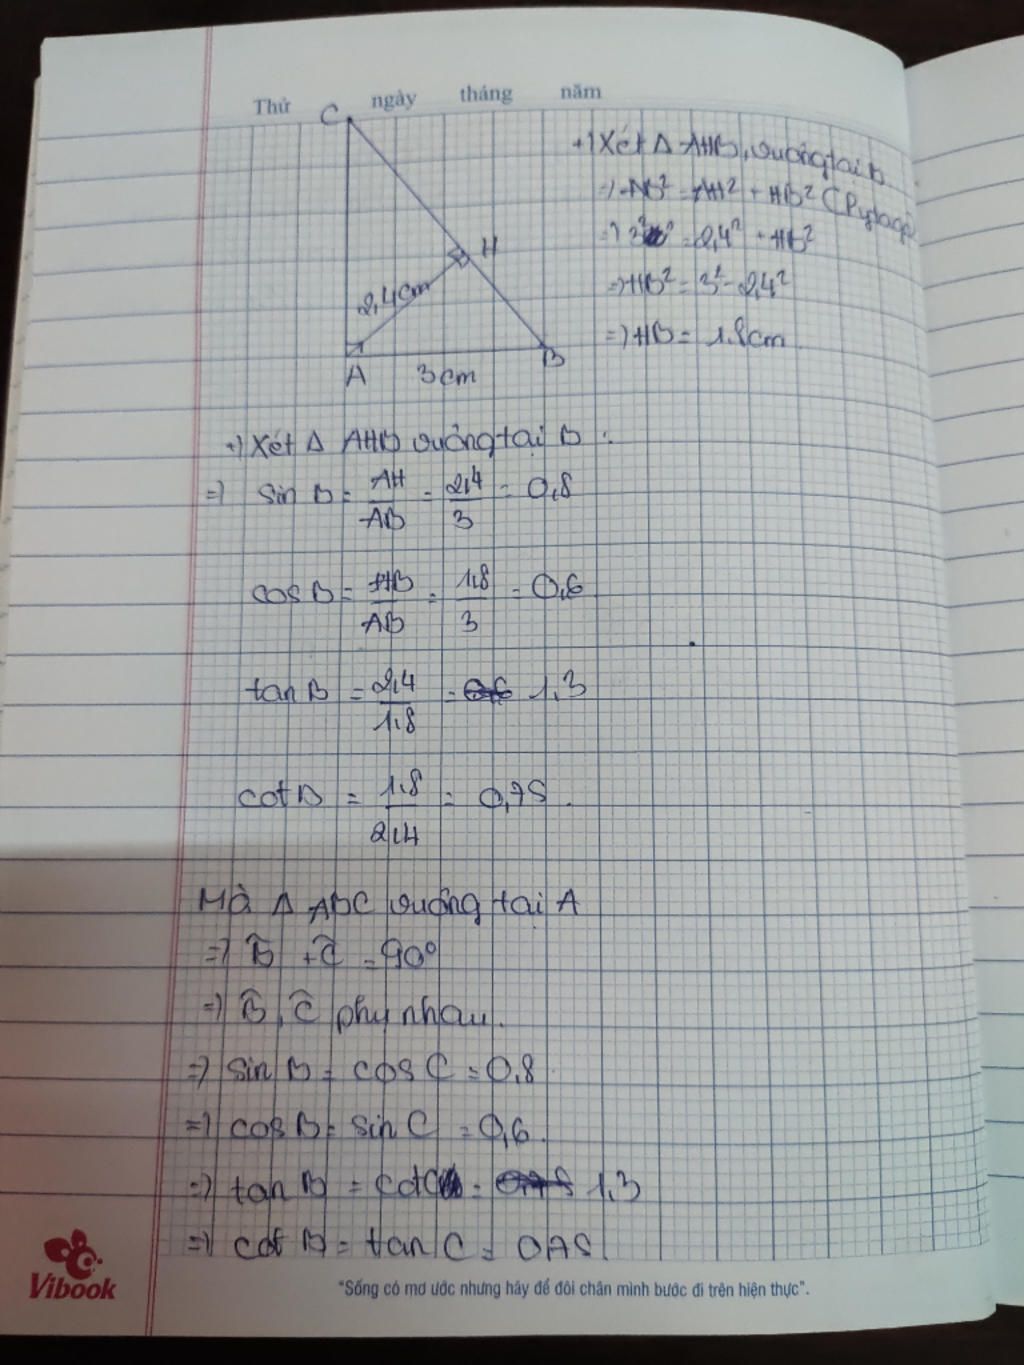 Thứ ngày tháng năm
C
H
2,4cm
A 3cm B
+) Xét Δ AHB, vuông tại B
=) AB² = AH² + HB² (Pytago)
=) 3² = 2,4² + HB²
=) HB² = 3² - 2,4²
=) HB = 1.8cm
+) Xét Δ AHB vuông tại B :
=) sin B = AH/AB = 2,4/3 = 0,8
cos B = HB/AB = 1.8/3 = 0,6
tan B = 2,4/1.8 = 1,3
cot B = 1.8/2,4 = 0,75.
Mà Δ ABC vuông tại A
=) B̂ + Ĉ = 90°
=) B̂, Ĉ phụ nhau.
=) sin B = cos C = 0,8
=) cos B = sin C = 0,6.
=) tan B = cot C = 1,3
=) cot B = tan C = 0,75.
Vibook
"Sống có mơ ước nhưng hãy để đôi chân mình bước đi trên hiện thực".